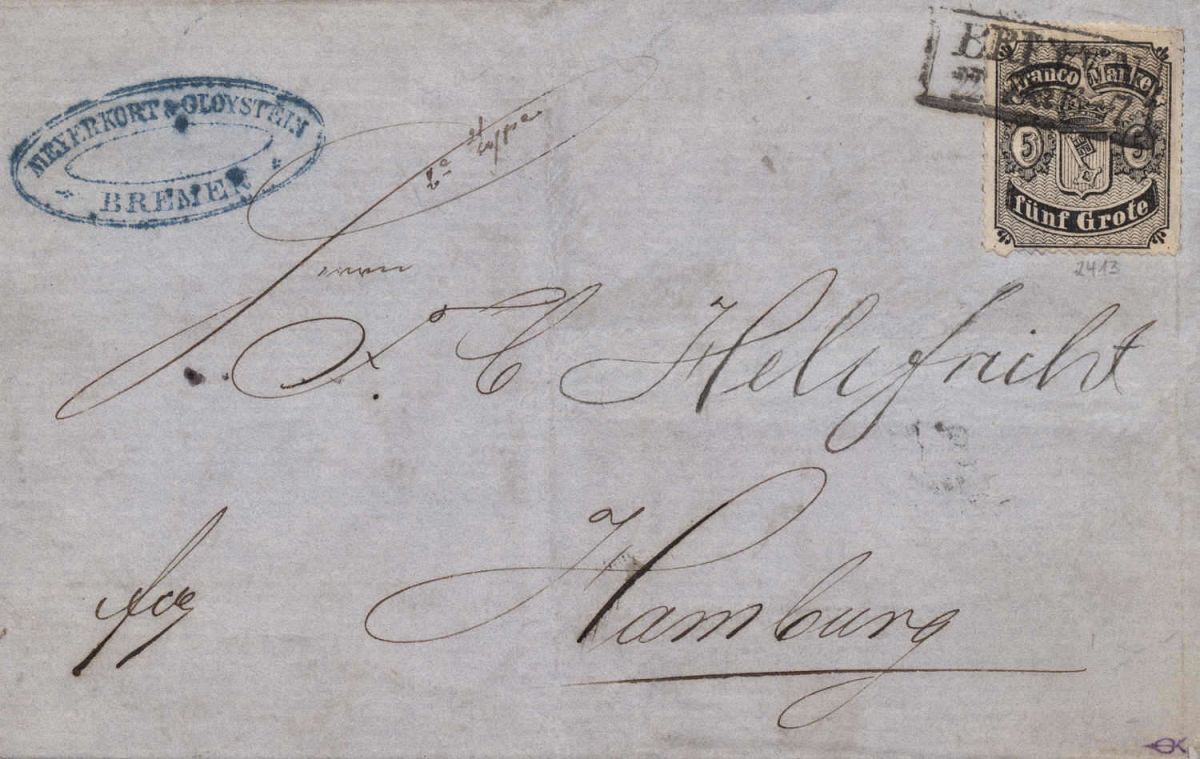 MEYERKORT & OLOYSTEIN
BREMEN
BREMEN
Franco Marke
5 5
fünf Grote
2413
Herrn
C Helffricht
Hamburg